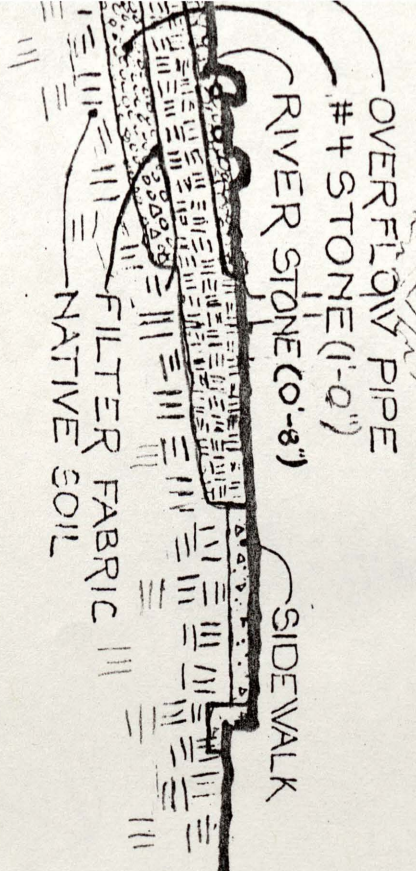 OVERFLOW PIPE
#4 STONE (1'-0")
RIVER STONE (0'-8")
SIDEWALK
FILTER FABRIC
NATIVE SOIL